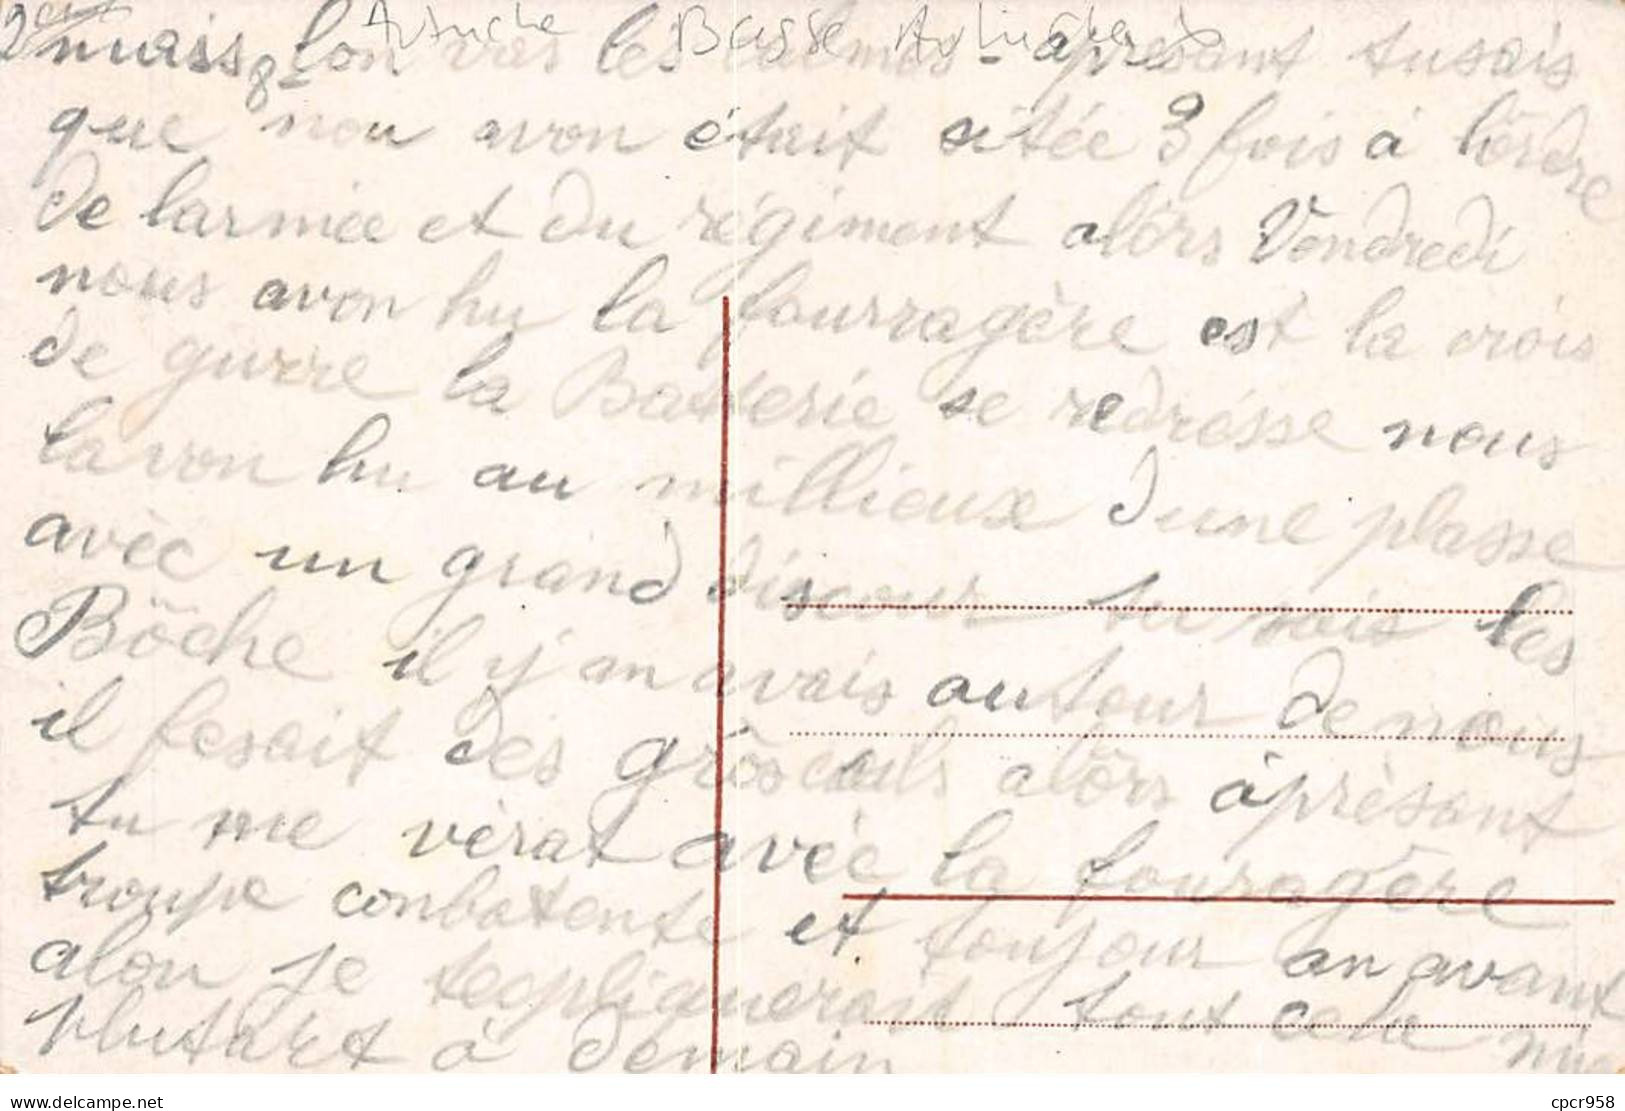 Autriche Basse Autriche
2 mais lon vas les - apresant tu sais
que nou avon était sitée 3 fois à lôrdre
de larmée et du régiment alôrs Vendredi
nous avon hu la fourragère est la crois
de gurre la Batterie se redrésse nous
lavon hu au millieux dune plasse
avèc un grand discour tu sais les
Bôche il y an avais autour de nous
il fesait des grôs œuils alôrs àprèsant
tu me vèrat avèc la fouragère
troupe conbatente et toujour an avant
alon je texpliquerait tout cela
plutart à demain
cpcr958